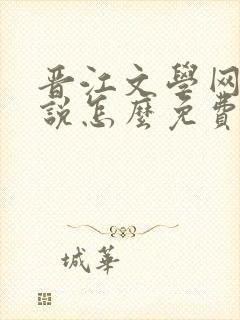 晋江文學网
說怎麼免費
城華